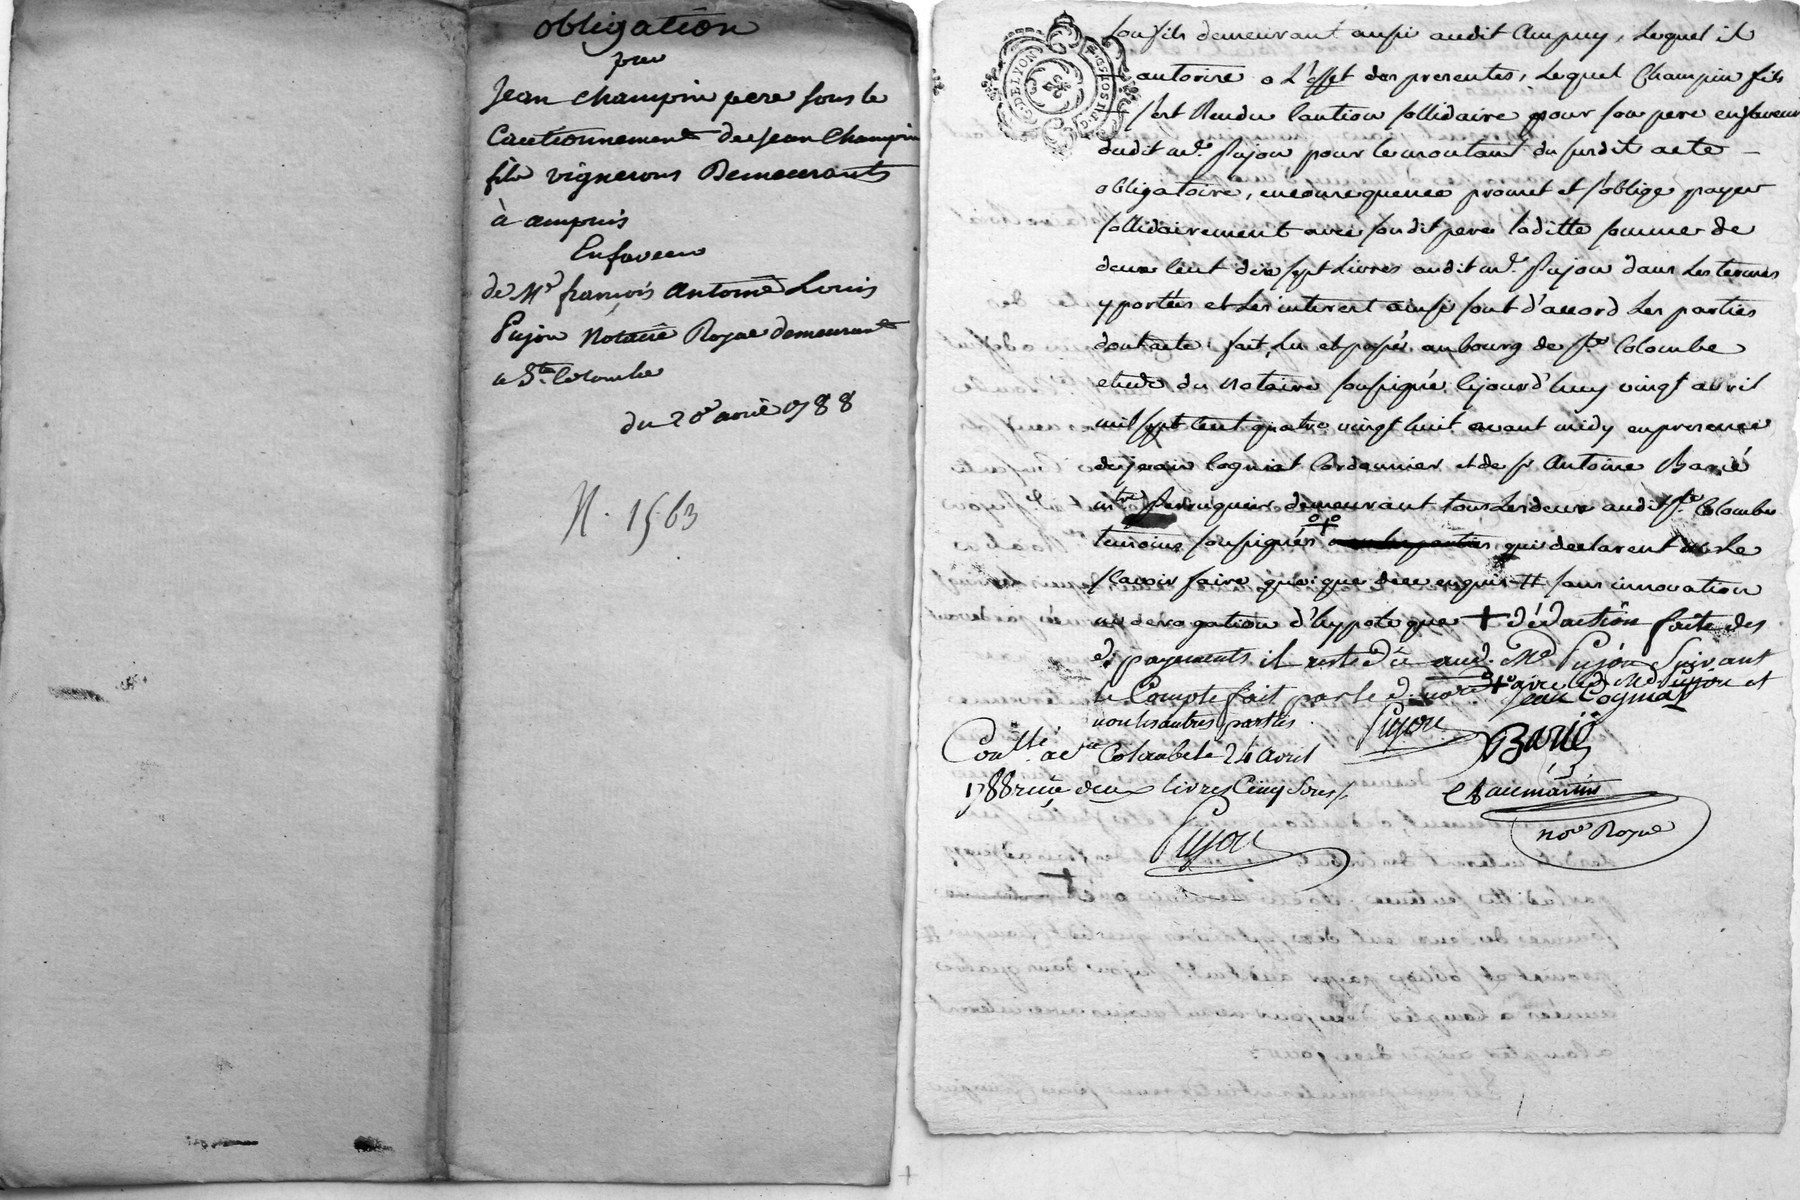 obligation
pour
Jean champin pere sous le
Cautionnement de Jean Champin
fils vignerons Demeurants
à ampuis
Enfaveur
de Me françois Antoine Louis
Pujon Notaire Royal demeurant
a Ste Colombe
du 20e avril 1788
N. 1563
G. DE LYON
son fils demeurant aussi audit Ampuy, lequel il
autorise a l'effet des presentes, lequel Champin fils
s'est Rendu Caution sollidaire pour son pere enfaveur
dudit me. Pujon pour le montant du susdit acte
obligatoire, enconsequence promet et s'oblige payer
sollidairement avec sondit pere laditte somme de
deux Cent dix sept Livres audit me. Pujon dans les termes
y portées et les interest ainsi sont d'accord les parties
dont acte fait, lu et passé au bourg de Ste Colombe
etude du notaire soussigné lejourd'huy vingt avril
mil sept Cent quatre vingt huit avant midy enpresence
dejean Cogniat Cordonnier et de sr Antoine Barié
mtre Perruquier demeurant tous lesdeux audit Ste Colombe
temoins soussignés qui declarent ne le
sçavoir faire quoique de ce enquis # sans innovation
ni derogation d'hypoteque + déduction faite des
d. payements il reste dû aud. Me Pujon Suivant
le Compte fait par le d. not avec led. Me Pujon et
non les autres parties.
Jean Cogniat
Pujon
Barié
Conllé a Ste Colombe le 24 Avril
1788 reçu deux livres Cinq Sous /.
Chaumartin
Pujon
nore Royal